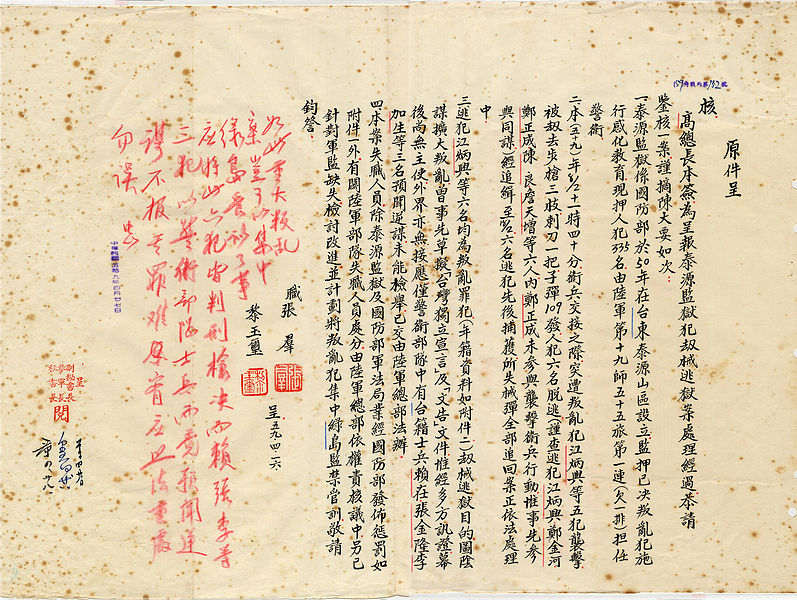 原件呈
核
高總長本簽為呈報泰源監獄犯劫械逃獄案處理經過恭請
鑒核一案謹摘陳大要如次：
一泰源監獄係國防部於50年在台東泰源山區設立監押已決叛亂犯施
行感化教育現押人犯335名由陸軍第十九師五十五旅第一連(欠一排)担任
警衛
二本(五九)年2/8十一時四十分衛兵交接之際突遭叛亂犯江炳興等五犯襲擊
被劫去步槍三枝刺刀一把子彈109發人犯六名脫逃(謹查逃犯江炳興鄭金河
鄭正成陳 良詹天增等六人內鄭正成未參與襲擊衛兵行動惟事先參
與同謀)經追緝至2/18六名逃犯先後捕獲所失械彈全部追回案正依法處理
中
三逃犯江炳興等六名均為叛亂罪犯(年籍資料如附件二)劫械逃獄目的圖陰
謀擴大叛亂曾事先草擬台灣獨立宣言及文告文件惟經多方訊證幕
後尚無主使外界亦無接應僅警衛部隊中有台籍士兵賴在張金隆李
加生等三名預聞逆謀未能檢舉已交由陸軍總部法辦
四本案失職人員除泰源監獄及國防部軍法局業經國防部發佈懲罰如
附件一外有關陸軍部隊失職人員處分由陸軍總部依權責核議中另已
針對軍監缺失檢討改進並計劃將叛亂犯集中綠島監禁當訓敬請
鈞詧
職張 羣
黎玉璽
呈五九、四、二六
如此重大叛亂
案豈可以集中
綠島管訓了事
應將此六犯皆判刑槍決而賴張李等
三犯以警衛部隊士兵而竟預聞逆
謀不報其罪难宥應照法重處
勿誤
中華民國五十九年四月廿七日
呈
副秘書長
參軍長
秘書長
閱